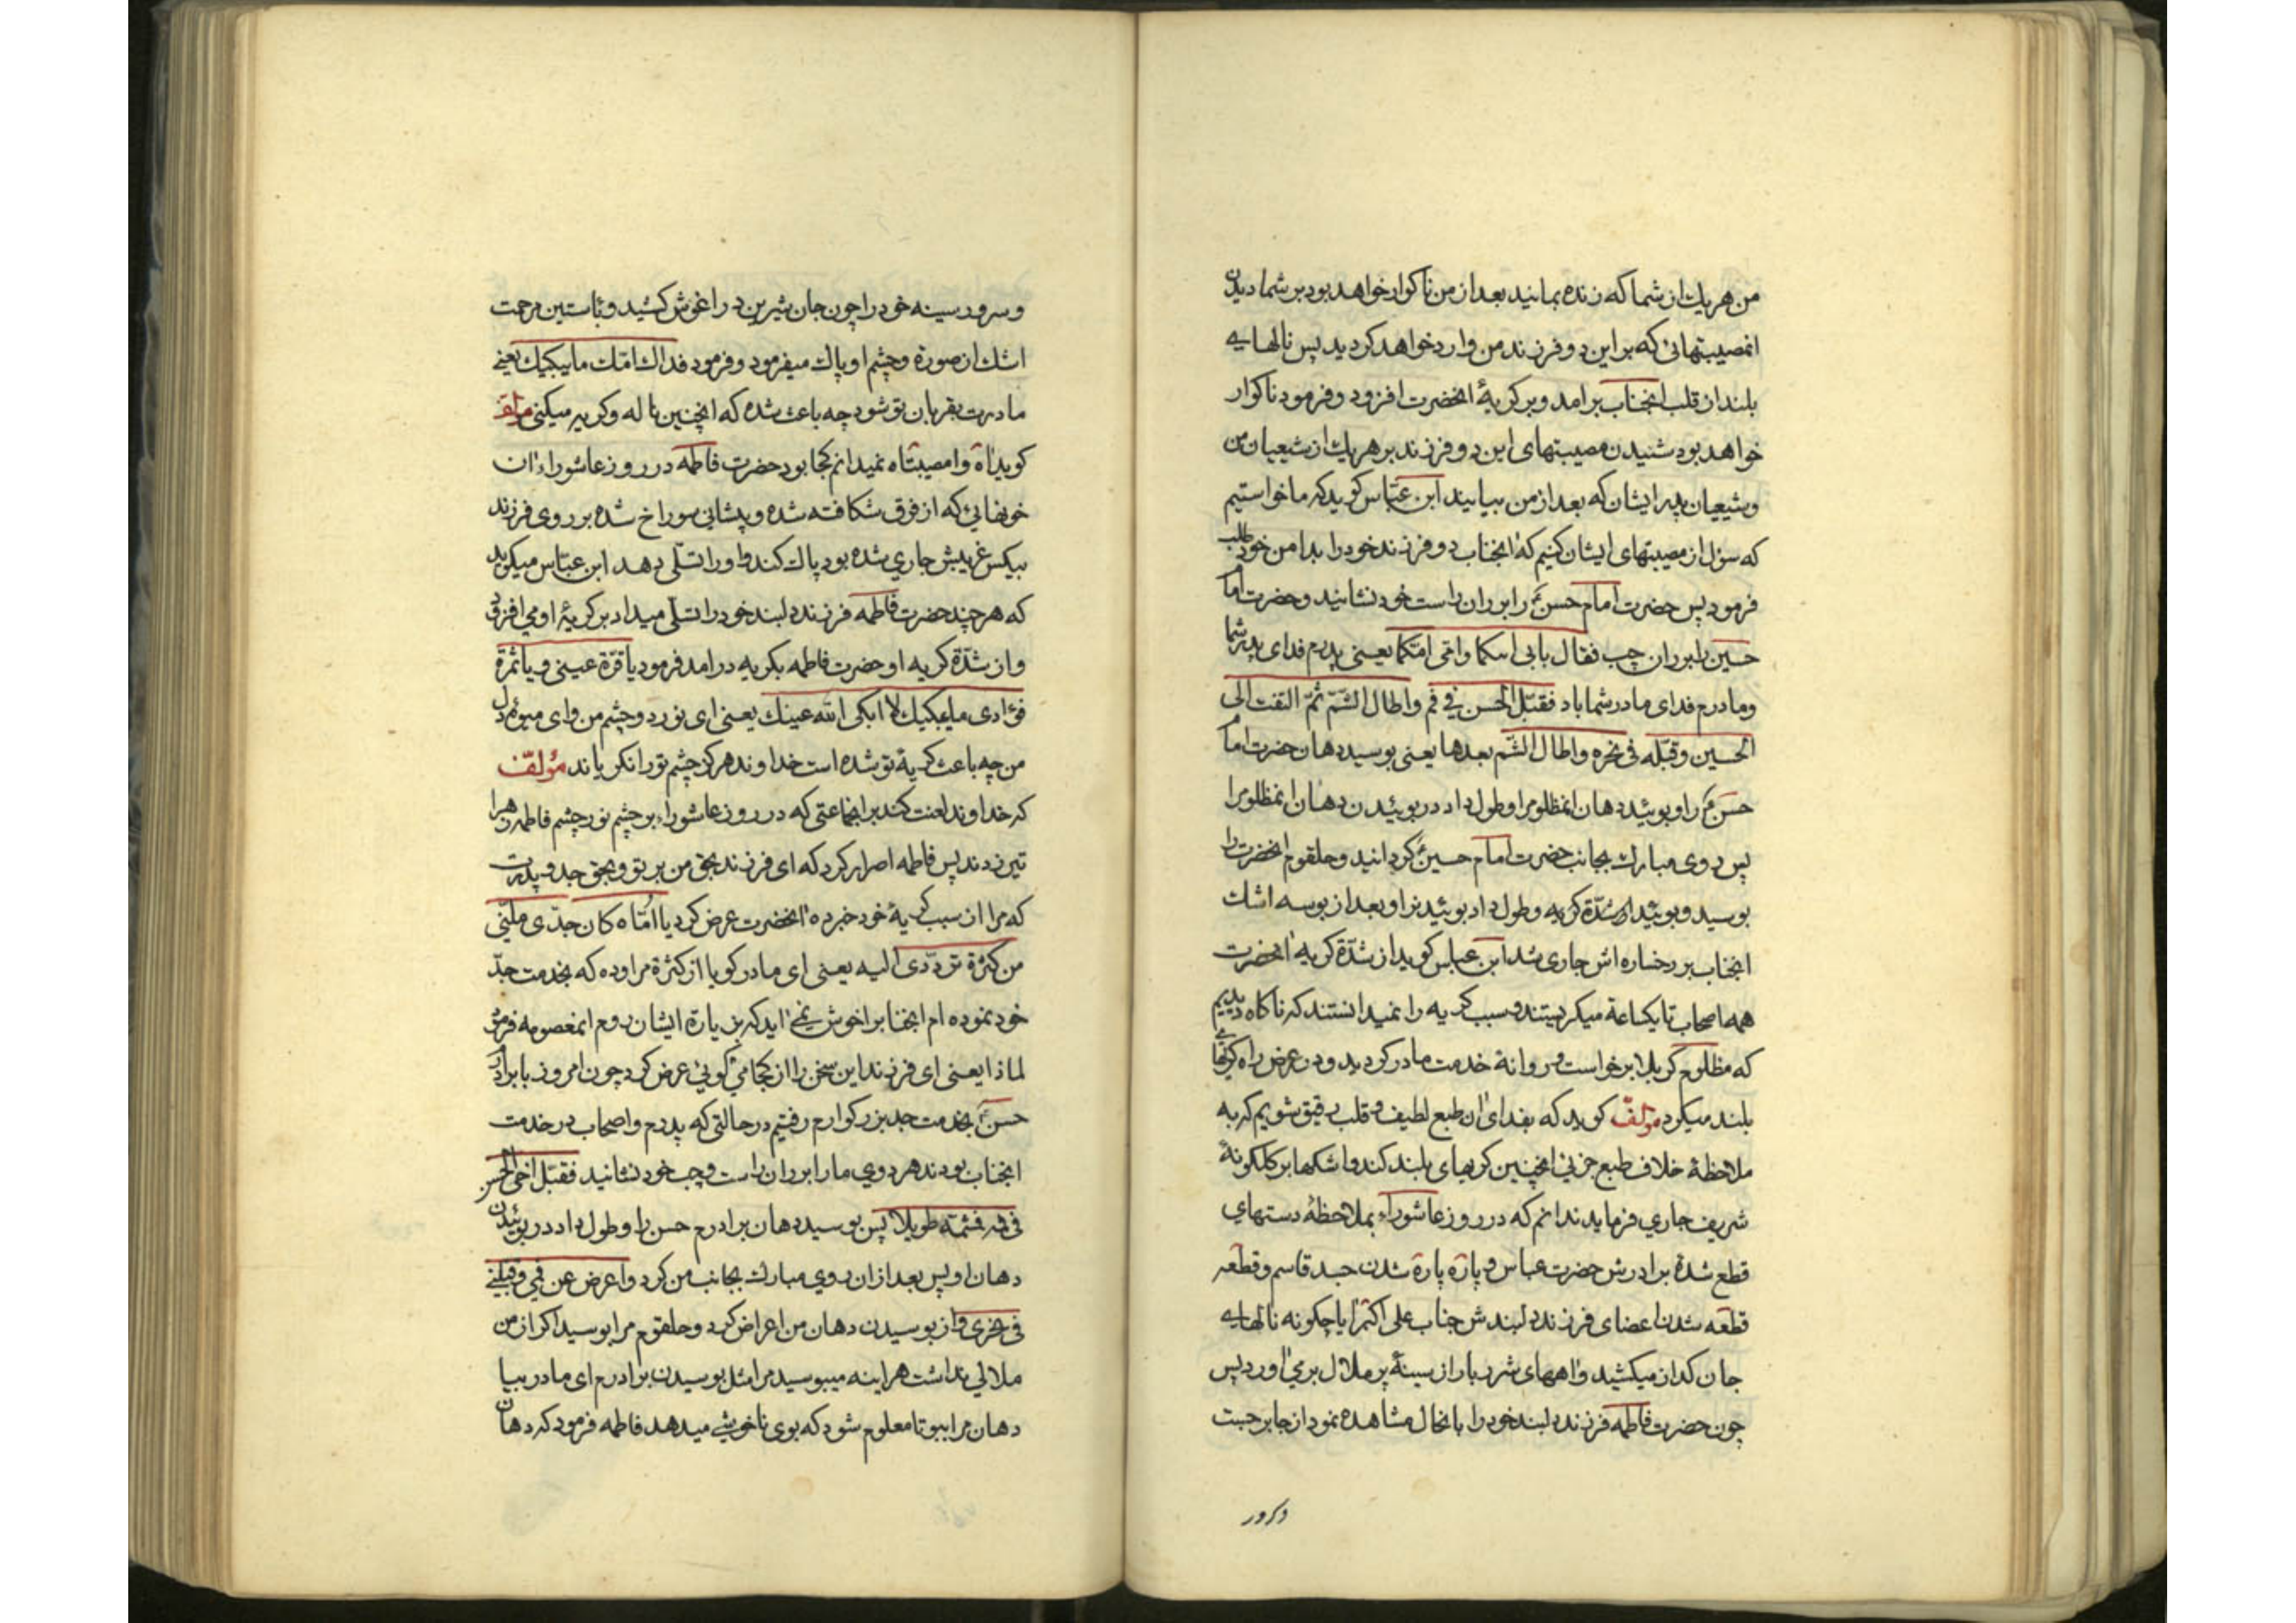 من هر یك از شما که زنده بمانید بعد از من ناکوار خواهد بود بر شما دیدن
انمصیبتهائی که بر این دو فرزند من وارد خواهد کردید پس نالهایی
بلند از قلب انجناب برامد و بر کریهٔ انحضرت افزود و فرمود ناکوار
خواهد بود شنیدن مصیبتهای این دو فرزند بر هر یك از شیعیان من
و شیعیان پدر ایشان که بعد از من بیایند ابن عبّاس کوید که ما خواستیم
که سؤل از مصیبتهای ایشان کنیم که انجناب دو فرزند خود را بدامن خود طلب
فرمود پس حضرت امام حسنؑ را بر ران راست خود نشانید و حضرت اما
حسین را بر ران چپ فقال بابی ابیکما و امّی امّکما یعنی پدرم فدای پدر شما
و مادرم فدای مادر شما باد فقبّل الحسن فی فم و اطال الشّم ثمّ التفت الی
الحسین و قبّله فی نحره و اطال الشّم بعدها یعنی بوسید دهان حضرت اما
حسنؑ را و بوئید دهان انمظلومرا و طول داد در بوئیدن دهان انمظلومرا
پس روی مبارك بجانب حضرت امام حسینؑ کردانید و حلقوم انحضرت را
بوسید و بوئید از شدّة کریه و طول داد بوئیدنرا و بعد از بوسه اشك
انجناب بر رخساره اش جاری شد ابن عباس کوید از شدّة کریه انحضرت
همه اصحاب تا یکساعة میکریستند و سبب کریه را نمیدانستند که ناکاه دیدیم
که مظلوم کربلا برخواست و روانهٔ خدمت مادر کردید و در عرض راه کریهایی
بلند میکرد مؤلّف کوید که بفدای ان طبع لطیف و قلب رقیق شویم که به
ملاحظهٔ خلاف طبع جزئی انچنین کریهای بلند کند و اشکها بر کلکونهٔ
شریف جاری فرماید ندانم که در روز عاشوراء بملاحظهٔ دستهای
قطع شدهٔ برادرش حضرت عباس و پاره پارة شدن جسد قاسم و قطعه
قطعه شدن اعضای فرزند دلبندش جناب علی اکبر ایا چکونه نالهایی
جان کداز میکشید و اههای شرر بار از سینهٔ پر ملال برمی اورد پس
چون حضرت فاطمه فرزند دلبند خود را بانحال مشاهده نمود از جا برجست
و سرور سینه خود را چون جان شیرین در اغوش کشید و بآستین مرحمت
اشك از صورة و چشم او پاك میفرمود و فرمود فداك امّك ما یبکیك یعنی
مادرت بقربان تو شود چه باعث شده که انچنین ناله و کریه میکنی مؤلف
کوید اه وا مصیبتاه نمیدانم کجا بود حضرت فاطمه در روز عاشوراء ان
خونهائی که از فرق شکافته شده و پیشانی سوراخ شده بر روی فرزند
بیکس غریبش جاری شده بود پاك کند و او را تسلّی دهد ابن عبّاس میکوید
که هر چند حضرت فاطمه فرزند دلبند خود را تسلّی میداد بر کریهٔ او می افزود
و از شدّة کریه او حضرت فاطمه بکریه درامد فرمود یا قرّة عینی و یا ثمرة
فؤادی ما یبکیك لا ابکی اللّه عینك یعنی ای نور دو چشم من و ای میوهٔ دل
من چه باعث کریهٔ تو شده است خداوند هرکز چشم تو را نکریاند مؤلّف
که خداوند لعنت کند بر انجماعتی که در روز عاشوراء بر چشم نور چشم فاطمه زهرا
تیر زدند پس فاطمه اصرار کرد که ای فرزند بحق من بر تو و بحق جد و پدرت
که مرا از سبب کریهٔ خود خبر ده انحضرت عرض کرد یا امّاه کان جدّی ملّنی
من کثرة تردّدی الیه یعنی ای مادر کویا از کثرة مراوده که بخدمت جدّ
خود نموده ام انجنابرا خوش نمی اید که بزیارة ایشان روم انمعصومه فرمود
لماذا یعنی ای فرزند این سخن را از کجا می کوئی عرض کرد چون امروز با برادر
حسنؑ بخدمت جد بزرکوارم رفتیم در حالتی که پدرم و اصحاب در خدمت
انجناب بودند هر دوی ما را بر ران راست و چپ خود نشانید فقبّل اخی الحسن
فی فمه فشمّه طویلا پس بوسید دهان برادرم حسن را و طول داد در بوئیدن
دهان او پس بعد از ان روی مبارك بجانب من کرد و اعرض عن فمی و قبّلنی
فی نحری و از بوسیدن دهان من اعراض کرد و حلقوم مرا بوسید اکر از من
ملالی نداشت هراینه میبوسید مرا مثل بوسیدن برادرم ای مادر بیا
دهان مرا ببو تا معلوم شود که بوی ناخوشی میدهد فاطمه فرمود که دهان